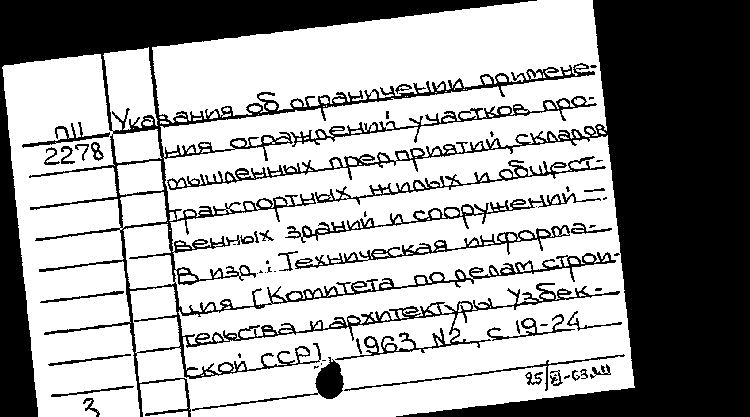 Указания об ограничении примене-
П11
2278
ния ограждений участков про-
мышленных предприятий, складов
транспортных, жилых и общест-
венных зданий и сооружений =
В изд.: Техническая информа-
ция [Комитета по делам строи-
тельства и архитектуры Узбек-
ской ССР], 1963, N2, с 19-24.
3